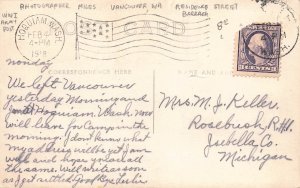 PHOTOGRAPHER MILES VANCOUVER WA RESIDENCE STREET
BARRACK
WWI
ARMY
POST
HOQUIAM, WASH.
FEB 4
4-PM
1918
CORRESPONDENCE HERE
NAME AND
CENTS
Monday
We left Vancouver
yesterday Morning and
in Hoquiam, Wash. Now
will leave for Camp in the
morning. I don't know what
my address will be yet. I am
well and hope you are all
the same. Will write soon
as I get settled. Good Bye Leslie
Mrs. M. J. Keller.
Rosebush R.#1.
Isabella Co.
Michigan